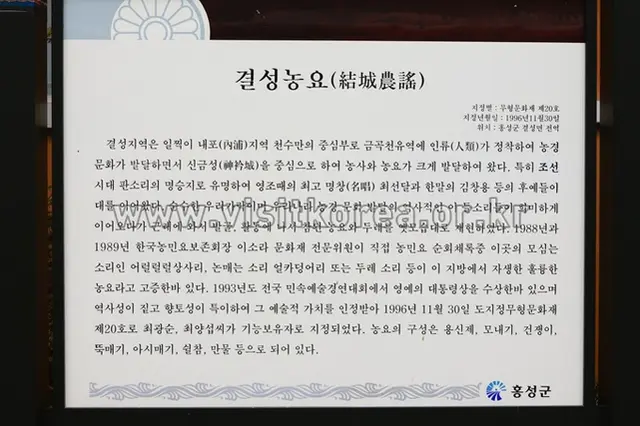 결성농요(結城農謠)
지정별 : 무형문화재 제20호
지정년월일 : 1996년11월30일
위치 : 홍성군 결성면 전역
결성지역은 일찍이 내포(內浦)지역 천수만의 중심부로 금곡천유역에 인류(人類)가 정착하여 농경
문화가 발달하면서 신금성(神衿城)을 중심으로 하여 농사와 농요가 크게 발달하여 왔다. 특히 조선
시대 판소리의 명승지로 유명하여 영조때의 최고 명창(名唱) 최선달과 한말의 김창용 등의 후예들이
대를 이어왔다. 순수한 우리가락이며 우리나라 농경 문화 발달의 역사적인 이 들소리가 희미하게
이어오다가 근래에 와서 발굴, 활동에 나서 잠든 농요와 두레를 옛모습대로 재현하였다. 1988년과
1989년 한국농민요보존회장 이소라 문화재 전문위원이 직접 농민요 순회채록중 이곳의 모심는
소리인 어럴럴럴상사리, 논매는 소리 얼카덩어리 또는 두레 소리 등이 이 지방에서 자생한 훌륭한
농요라고 고증한바 있다. 1993년도 전국 민속예술경연대회에서 영예의 대통령상을 수상한바 있으며
역사성이 짙고 향토성이 특이하여 그 예술적 가치를 인정받아 1996년 11월 30일 도지정무형문화재
제20호로 최광순, 최양섭씨가 기능보유자로 지정되었다. 농요의 구성은 용신제, 모내기, 건쟁이,
뚝매기, 아시매기, 쉴참, 만물 등으로 되어 있다.
www.visitkorea.or.kr
홍성군